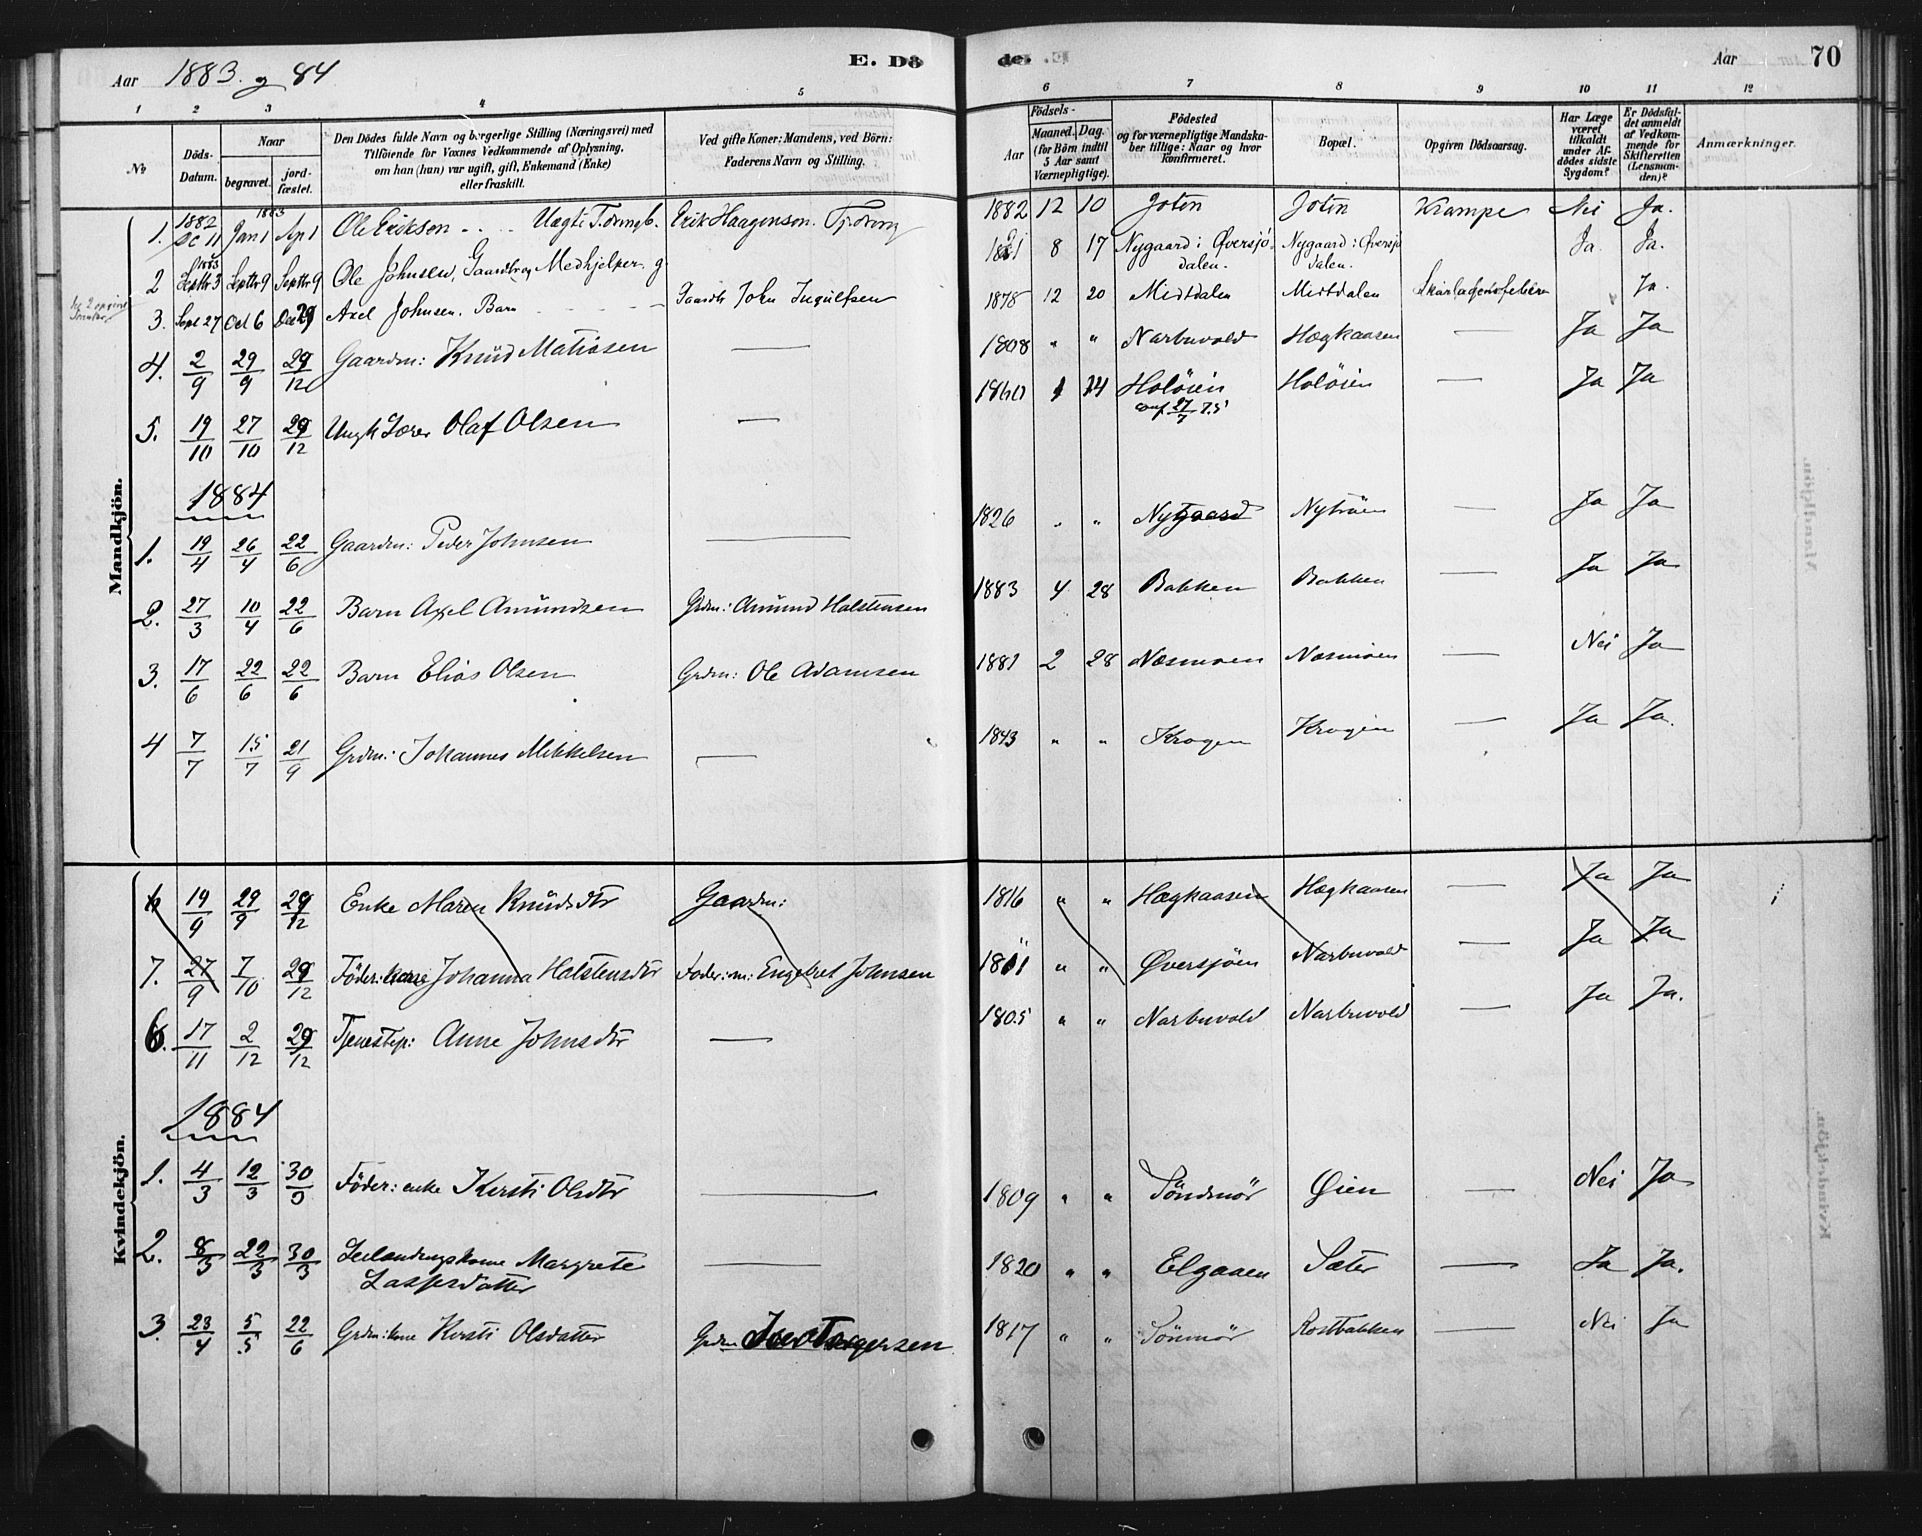 Aar 1883. g 84
E. Dö
de. E.
Aar 70
1 2 3 4 5 6 7 8 9 10 11 12
No
Döds-Datum.
Naar
begravet.
jordfæstet.
Den Dödes fulde Navn og borgerlige Stilling (Næringsvei) med
Tilföiende for Voxnes Vedkommende af Oplysning,
om han (hun) var ugift, gift, Enkemand (Enke)
eller fraskilt.
Ved gifte Koner: Mandens, ved Börn:
Faderens Navn og Stilling.
Födsels-
Aar
Maaned. Dag.
(for Börn indtil
5 Aar samt
Værnepligtige).
Födested
og for værnepligtige Mandska-
ber tillige: Naar og hvor
konfirmeret.
Bopæl.
Opgiven Dödsaarsag.
Har Læge
været
tilkaldt
under Af-
dödes sidste
Sygdom?
Er Dödsfal-
det anmeldt
af Vedkom-
mende for
Skifteretten
(Lensman-
den)?
Anmærkninger.
Mandkjön.
1883
1. 1882 Dc 11 Jan 1 Apl 1 Ole Eriksen Erik Haagenson. 1882 12 10 Joten Joten Krampe Nei Ja.
2 1883 Septbr 3 Septbr 9 Septbr 9 Ole Johnsen, Gaardbr og Medhjelper. 8 17 Nygaard i Øversjødalen. Nygaard i Øversjødalen. Ja. Ja.
3. Sept 27 Oct 6 Dec 29 Axel Johnsen. Barn Gaardb John Ingulfsen 1878 12 20 Midtdalen Midtdalen Skarlagensfeber Ja.
4. 2/9 29/9 29/12 Gaardm: Knud Matiasen — 1808 " " Narbuvold Hægkaasen — Ja Ja
5. 19/10 27/10 29/12 Ungk Lærer Olaf Olsen — 1860 1 14 Holöien conf 27/7 75 Holöien — Ja Ja
1884
1. 19/4 26/4 22/6 Gaardm: Peder Johnsen — 1826 " " Nygaard Nytröen — Ja Ja
2. 27/3 10/4 22/6 Barn Axel Amundsen Grdm: Amund Halstensen 1883 4 28 Bakken Bakken — Ja Ja
3. 17/6 22/6 22/6 Barn Elias Olsen Grdm: Ole Adamsen 1881 2 28 Næsmoen Næsmoen — Nei Ja
4 7/7 15/7 21/9 Grdm: Johannes Mikkelsen — 1843 " " Krogen Krogen — Ja Ja.
Kvindekjön.
19/9 29/9 29/12 Enke Maren Knudsdtr Gaardm: 1816 " " Hægkaasen Hægkaasen — Ja Ja
7. 27/9 7/10 29/12 Föder:kone Johanna Halstensdtr Foder:m: Engebret Johnsen 1811 " " Øversjöen Narbuvold — Ja Ja
6. 17/11 2/12 29/12 Tjenestep: Anne Johnsdtr — 1805 " " Narbuvold Narbuvold — Ja Ja.
1884
1. 4/3 12/3 30/3 Föder: enke Kersti Olsdtr — 1809 " " Söndmör Øien — Nei Ja
2. 8/3 22/3 30/3 Leilændingskone Margrete — 1820 " " Elgaaen Sæter — Ja Ja.
Lassesdatter
3. 23/4 5/5 22/6 Grdm:kone Kersti Olsdatter Grdm Iver Torgersen 1817 " " Sönmör Rostbakken — Nei Ja
Mandkjön.
Kvindekjön.